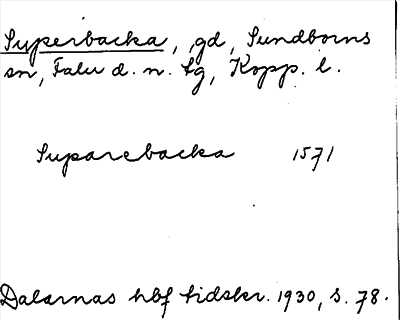 Superbacka, gd, Sundborns
sn, Falu d. n. tg, Kopp. l.
Suparebacka 1571
Dalarnas hbf tidskr. 1930, s. 78.